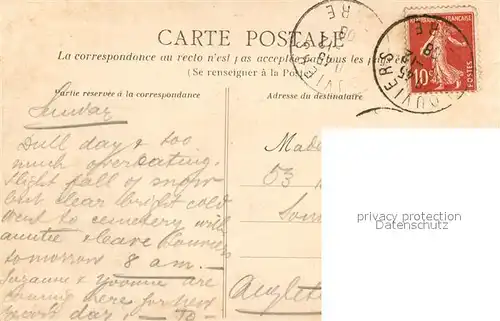 CARTE POSTALE
La correspondance au recto n'est pas acceptée par tous les pays
(Se renseigner à la Poste)
Partie réservée à la correspondance
Adresse du destinataire
Sunday
Dull day & too
much overeating.
Slight fall of snow
but clear bright cold
went to cemetery with
auntie & leave Louviers
tomorrow 8 am.
Suzanne & Yvonne are
coming here for New
Year's day
Made
53
Anglete
RÉPUBLIQUE FRANÇAISE
10
POSTES
LOUVIERS
privacy protection
Datenschutz